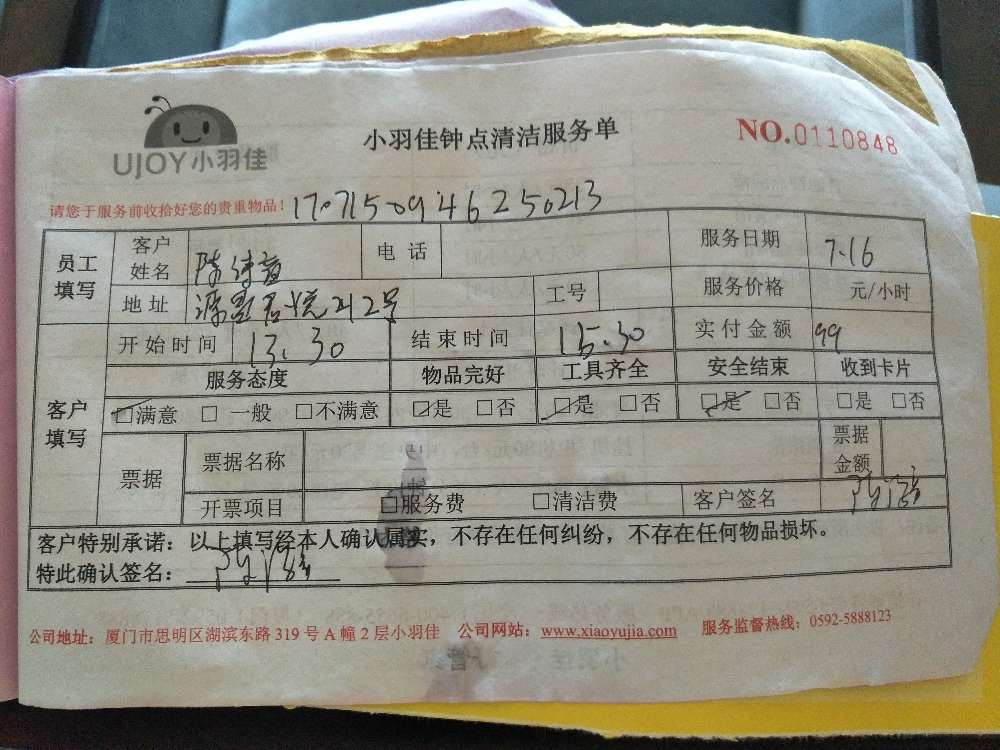 UJOY小羽佳
小羽佳钟点清洁服务单
NO.0110848
请您于服务前收拾好您的贵重物品！
1707150946250213
员工填写 客户姓名 电话 服务日期 7.16
地址 212号 工号 服务价格 元/小时
客户填写 开始时间 13.30 结束时间 15.30 实付金额 99
服务态度 物品完好 工具齐全 安全结束 收到卡片
☑满意 □一般 □不满意 ☑是 □否 ☑是 □否 ☑是 □否 □是 □否
票据 票据名称 票据金额
开票项目 □服务费 □清洁费 客户签名
客户特别承诺：以上填写经本人确认属实，不存在任何纠纷，不存在任何物品损坏。
特此确认签名：
公司地址：厦门市思明区湖滨东路319号A幢2层小羽佳 公司网站：www.xiaoyujia.com 服务监督热线：0592-5888123